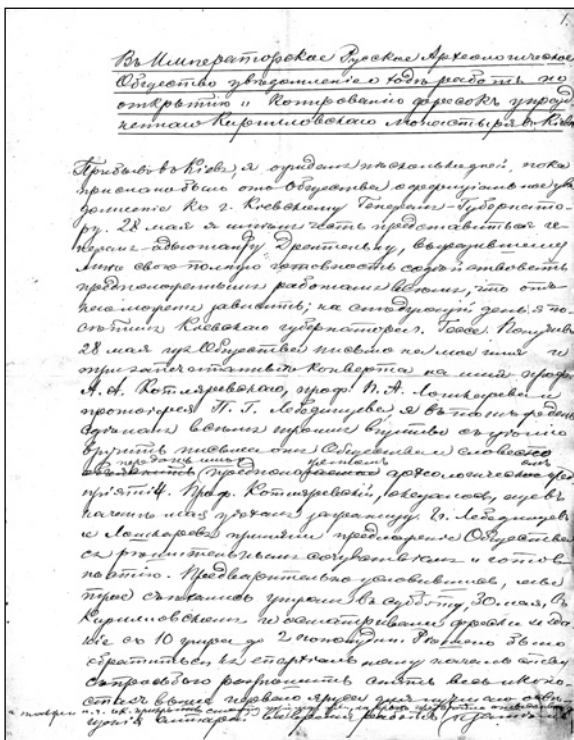 1.
Въ Императорское Русское Археологическое
Общество уведомленіе о ходѣ работъ по
открытію и копированію фресокъ упразд-
неннаго Кирилловскаго монастыря в. Кіевѣ
Прибывъ въ Кіевъ, я ожидалъ нѣсколько дней, пока
прислано было отъ Общества оффиціальное уве-
домленіе къ г. Кіевскому Генералъ-Губернато-
ру. 28 мая я имѣлъ честь представиться ге-
нералъ-адъютанту Дрентельну, выразившему
мнѣ свою полную готовность содѣйствовать
предположеннымъ работамъ всѣмъ, что отъ
него можетъ зависѣть; на слѣдующій день я по-
сѣтилъ Кіевскаго губернатора г. Гессе. Получивъ
28 мая изъ Общества письмо на мое имя и
три запечатанныхъ конверта на имя проф.
А. А. Котляревскаго, проф. П. А. Лошкарева и
протоіерея П. Г. Лебединцева я въ тотъ же день
сдѣлалъ всѣмъ троимъ визиты съ цѣлію
вручить письма отъ Общества и словесно
предпріятіи. Проф. Котляревскій, оказалось, еще въ
началѣ мая уѣхалъ заграницу. Гг. Лебединцевъ
и Лошкаревъ приняли предложеніе Общества
съ рѣшительнымъ сочувствіемъ и готов-
ностію. Предварительно условившись, мы
трое съѣхались утромъ въ субботу 30 мая въ
Кирилловскій и осматривали фрески и зда-
ніе съ 10 утра до 2 пополудни. Рѣшено было
обратиться къ епархіальному начальству
съ просьбою разрѣшить снять весь иконо-
стасъ выше перваго яруса для лучшаго осве-
щенія алтарей во время работъ